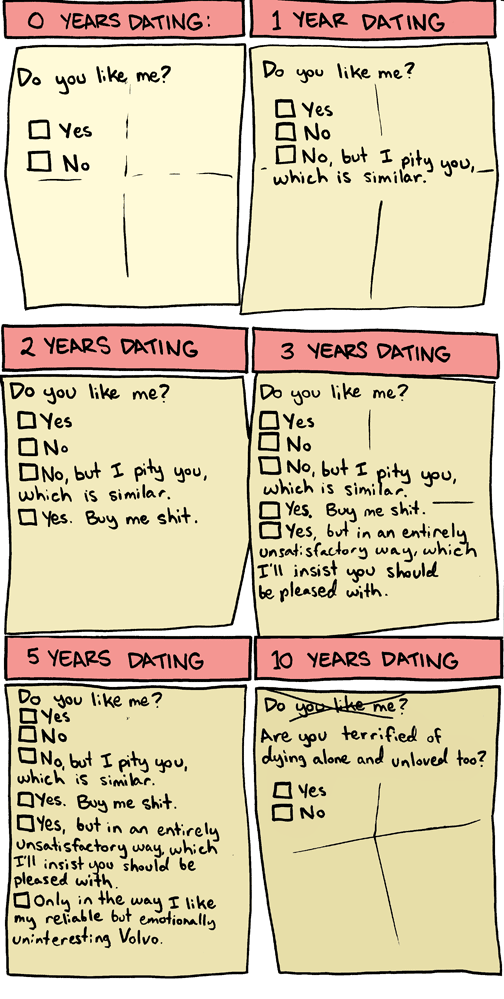 0 YEARS DATING:
Do you like me?
Yes
No
1 YEAR DATING
Do you like me?
Yes
No
No, but I pity you,
which is similar.
2 YEARS DATING
Do you like me?
Yes
No
No, but I pity you,
which is similar.
Yes. Buy me shit.
3 YEARS DATING
Do you like me?
Yes
No
No, but I pity you,
which is similar.
Yes. Buy me shit.
Yes, but in an entirely
unsatisfactory way, which
I'll insist you should
be pleased with.
5 YEARS DATING
Do you like me?
Yes
No
No, but I pity you,
which is similar.
Yes. Buy me shit.
Yes, but in an entirely
unsatisfactory way, which
I'll insist you should be
pleased with.
Only in the way I like
my reliable but emotionally
uninteresting Volvo.
10 YEARS DATING
Do you like me?
Are you terrified of
dying alone and unloved too?
Yes
No